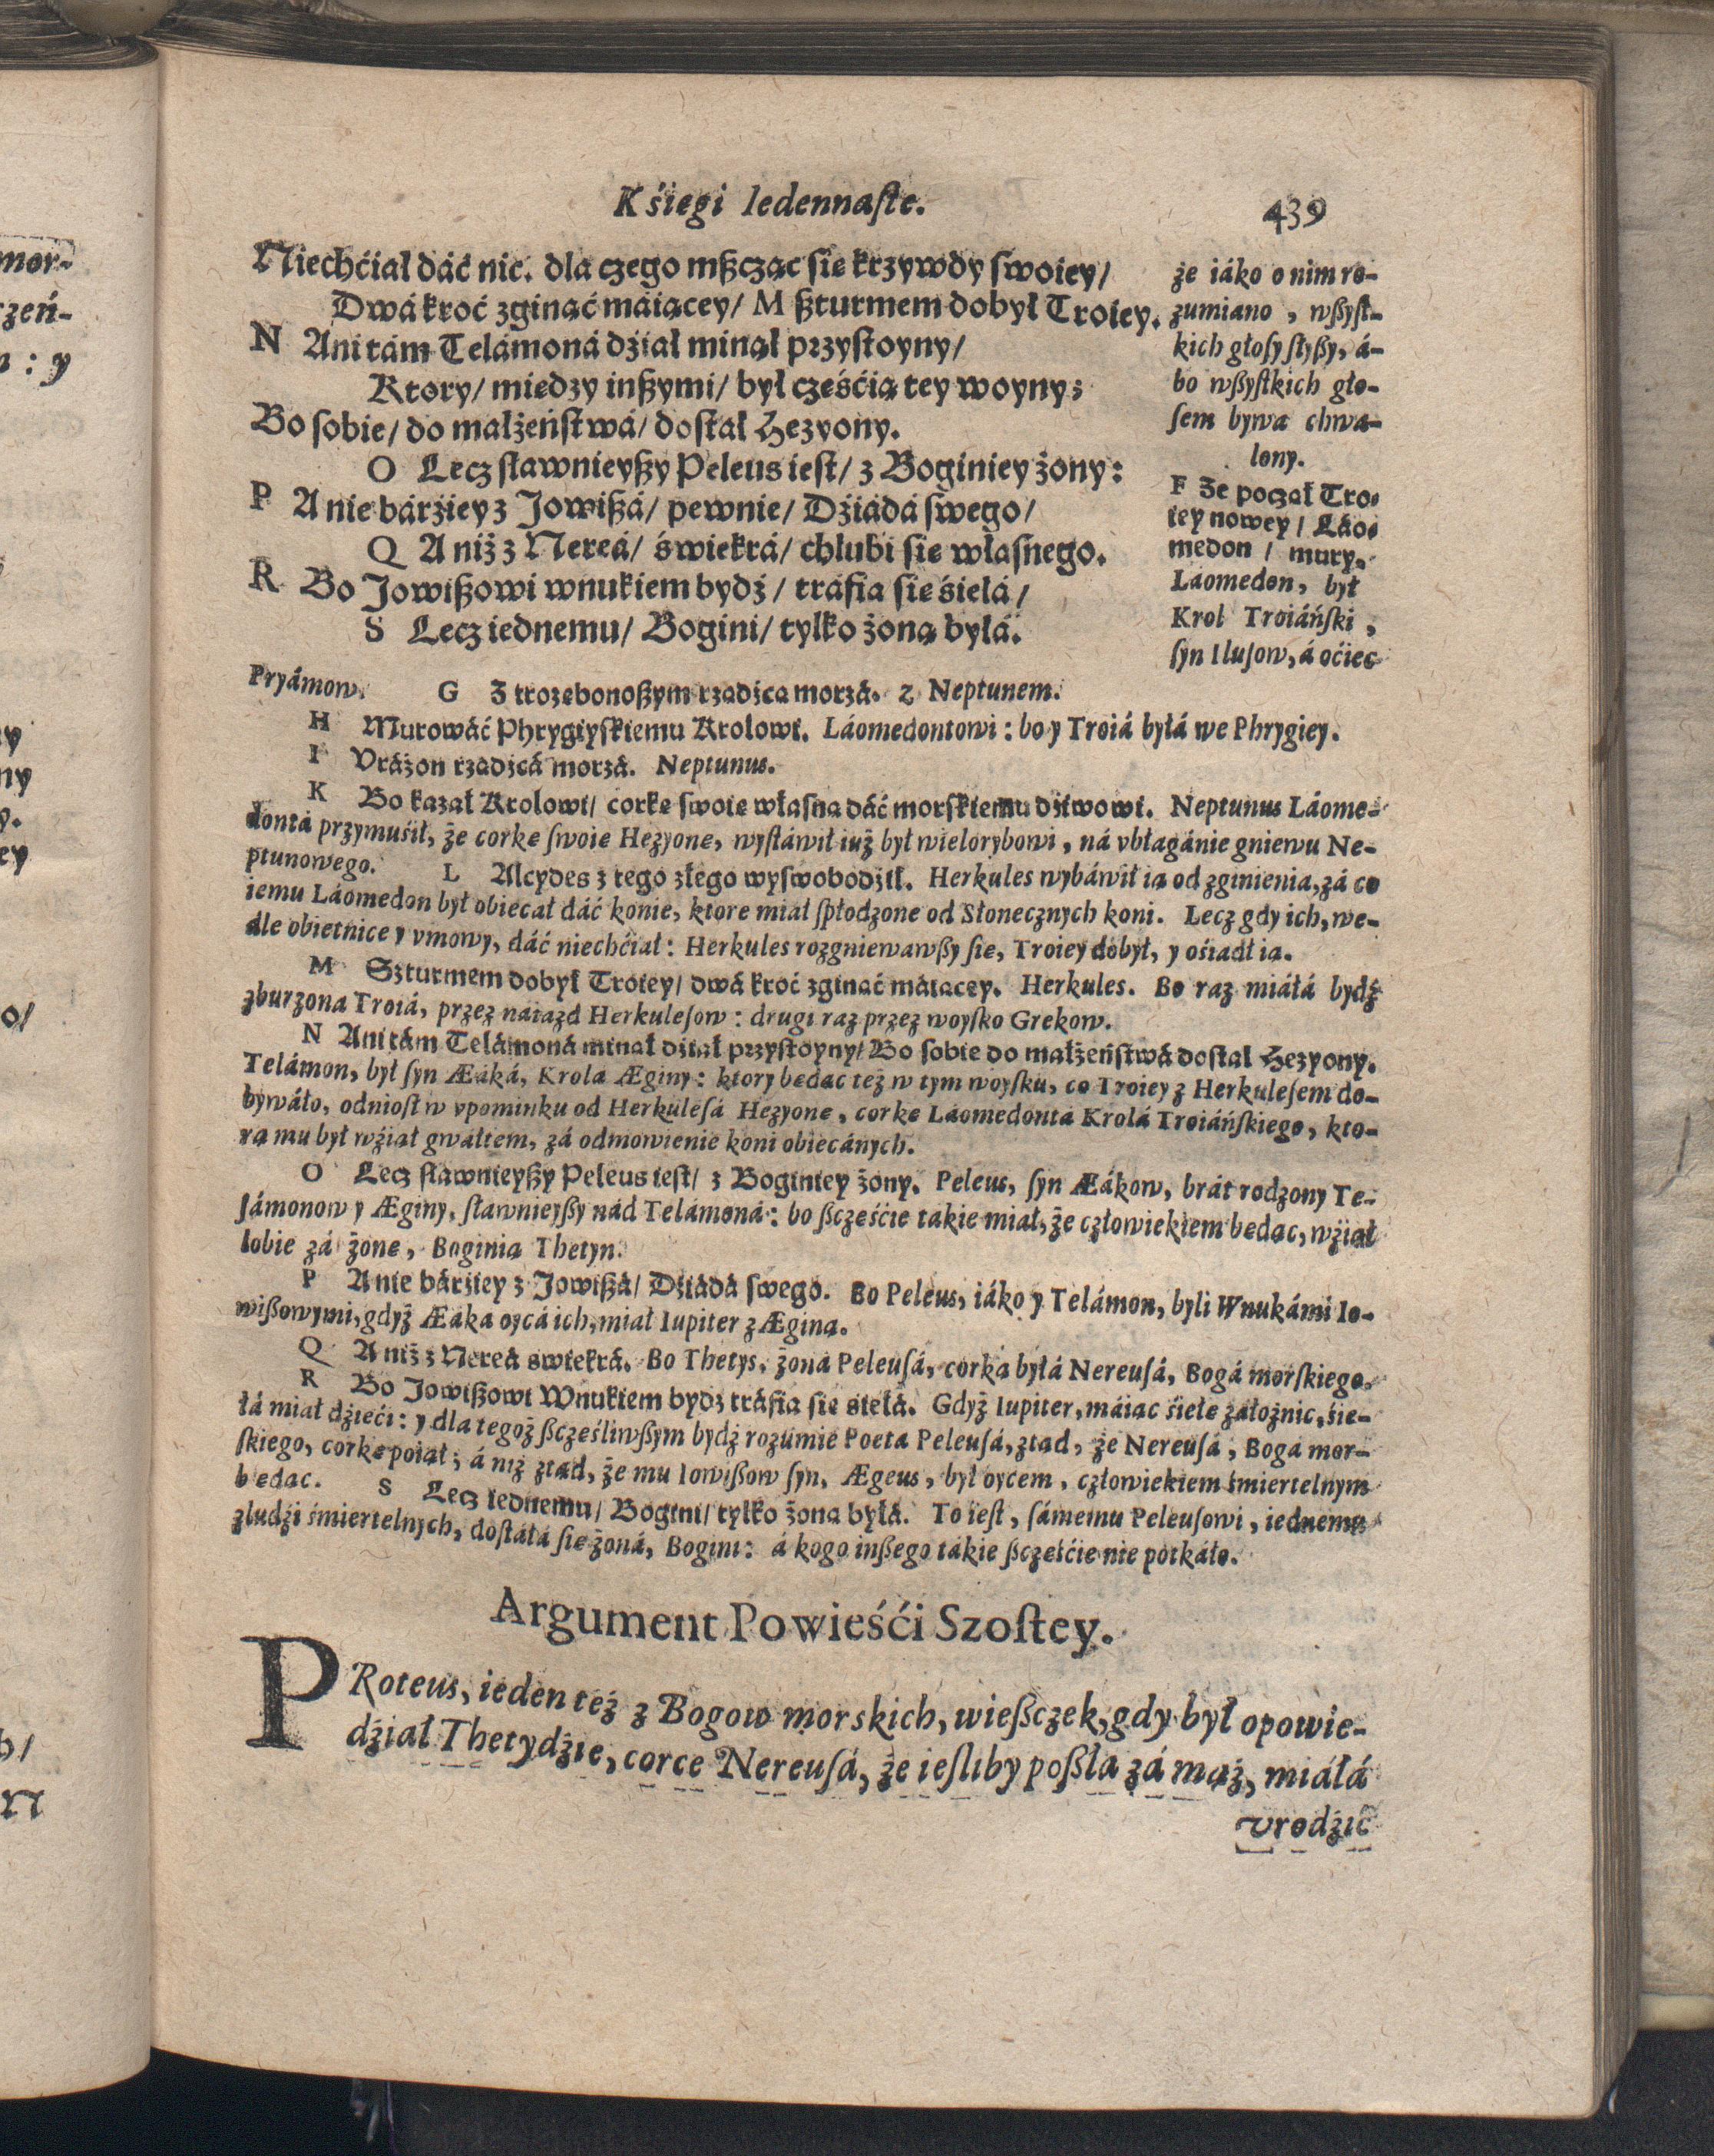 Kśięgi Iedennaſte.
439
Niechćiał dáć nic. dla czego mßcząc ſie krzywdy ſwoiey/
Dwá kroć zginąć máiącey/ M ßturmem dobył Troiey.
N Ani tám Telámoná dźiał minął przyſtoyny/
Ktory/ między inßymi/ był częśćią tey woyny;
Bo ſobie/ do małżeńſtwá/ doſtał Hezyony.
O Lecz ſławnieyßy Peleus ieſt/ z Boginiey żony:
P A nie bárźiey z Jowißá/ pewnie/ Dźiádá ſwego/
Q A niż z Nereá/ świekrá/ chlubi ſie właſnego.
R Bo Jowißowi wnukiem bydź/ tráfia ſie śielá/
S Lecz iednemu/ Bogini/ tylko żoną byłá.
że iáko o nim ro-
zumiano, wßyſt-
kich głoſy ſłyßy, á-
bo wßyſtkich gło-
ſem bywa chwa-
lony.
F Że począł Tro-
iey nowey/ Láo-
medon/ mury.
Láomedon, był
Krol Troiáńſki,
ſyn Iluſow, á oćiec
Pryámow. G Z trozębonoßym rządźcą morzá. Z Neptunem.
H Murowáć Phrygiyſkiemu Krolowi. Láomedontowi: bo y Troiá byłá we Phrygiey.
I Vráżon rządźcá morzá. Neptunus.
K Bo kazał Krolowi/ corkę ſwoię właſną dáć morſkiemu dźiwowi. Neptunus Láome-
dontá przymuśił, że corkę ſwoię Hezyonę, wyſtáwił iuż był wielorybowi, ná vbłagánie gniewu Ne-
ptunowego. L Alcydes z tego złego wyſwobodźił. Herkules wybáwił ią od zginienia, zá co
iemu Láomedon był obiecał dáć konie, ktore miał ſpłodzone od Słonecznych koni. Lecz gdy ich, we-
dle obietnice y vmowy, dáć niechćiał: Herkules rozgniewawßy ſie, Troiey dobył, y ośiadł ią.
M Szturmem dobył Troiey/ dwá kroć zginąć máiącey. Herkules. Bo raz miáłá bydź
zburzona Troiá, przez náiazd Herkuleſow: drugi raz przez woyſko Grekow.
N Ani tám Telámoná minął dźiał przyſtoyny/ Bo ſobie do małżeńſtwá doſtał Hezyony.
Telámon, był ſyn Æáká, Krolá Æginy: ktory będąc też w tym woyſku, co Troiey z Herkuleſem do-
bywáło, odnioſł w vpominku od Herkuleſá Hezyonę, corkę Láomedontá Krolá Troiáńſkiego, kto-
rą mu był wźiął gwałtem, zá odmowienie koni obiecánych.
O Lecz ſławnieyßy Peleus ieſt/ z Boginiey żony. Peleus, ſyn Æákow, brát rodzony Te-
lámonow y Æginy, ſławnieyßy nád Telámoná: bo ßczęśćie tákie miał, że człowiekiem będąc, wźiął
ſobie zá żonę, Boginią Thetyn.
P A nie bárźiey z Jowißá/ Dźiádá ſwego. Bo Peleus, iáko y Telámon, byli Wnukámi Io-
wißowymi, gdyż Æáka oycá ich, miał Iupiter z Æginą.
Q A niż z Nereá świekrá. Bo Thetys, żoná Peleuſá, corká byłá Nereuſá, Bogá morſkiego.
R Bo Jowißowi Wnukiem bydź tráfia ſie śiełá. Gdyż Iupiter, máiąc śiełę záłożnic, śie-
łá miał dźieći: y dla tegoż ßczęśliwßym bydź rozumie Poetá Peleuſá, ztąd, że Nereuſá, Bogá mor-
ſkiego, corkę poiął; á niż ztąd, że mu Iowißow ſyn, Ægeus, był oycem, człowiekiem śmiertelnym
będąc. S Lecz iednemu/ Bogini/ tylko żoną byłá. To ieſt, ſámemu Peleuſowi, iednemu
z ludźi śmiertelnych, doſtáłá ſie żoná, Bogini: á kogo inßego tákie ßczęśćie nie potkáło.
Argument Powieśći Szoſtey.
PRoteus, ieden też z Bogow morskich, wießczek, gdy był opowie-
dźiał Thetydźie, corce Nereuſá, że ieſliby poßła zá mąż, miáłá
vrodźić